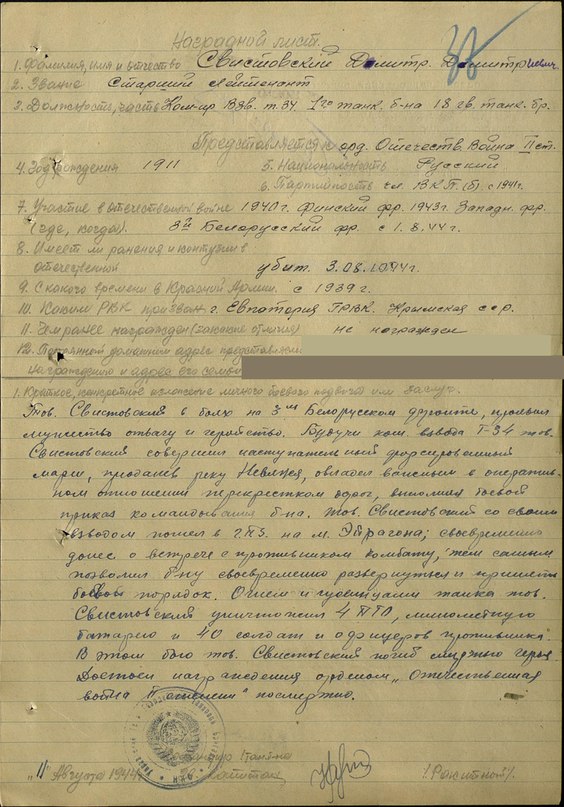 Наградной лист.
38
1. Фамилия, имя и отчество Свистовский Дмитр. Дмитриевич
2. Звание Старший Лейтенант
3. Должность, часть Ком-ир Взв. т. 34 1го танк. б-на 18 гв. танк. бр.
Представляется к орд. Отечеств Война II ст.
4. Год рождения 1911 5. Национальность Русский
6. Партийность чл. ВКП(б) с 1941г.
7. Участие в отечественной войне 1940г. Финский фр. 1943г. Западн. фр.
(где, когда). 3й Белорусский фр. с 1.8.44г.
8. Имеет ли ранения и контузии в
отечественной убит. 3.08.1944г.
9. С какого времени в Красной Армии. с 1939г.
10. Каким РВК призван г. Евпатория ГРВК. Крымская сср.
11. Чем ранее награжден (за какие отличия) не награжден
12. Постоянный домашний адрес представлен
награждению и адрес его семьи
1. Краткое, конкретное изложение личного боевого подвига или заслуг.
Тов. Свистовский в боях на 3ем Белорусском фронте, проявил
мужество отвагу и геройство. Будучи ком. взвода Т-34 тов.
Свистовский совершил наступательный форсированный
марш, проделав реку Невяжа, овладел важным в оператив-
ном отношении перекрестком дорог, выполнил боевой
приказ командования б-на. Тов. Свистовский со своим
взводом пошел в ГПЗ. на м. Эйрагола; своевременно
донес о встрече с противником комбату, тем самым
позволил б-ну своевременно развернуться и принять
боевой порядок. Огнем и гусеницами танка тов.
Свистовский уничтожил 4 ПТО, минометную
батарею и 40 солдат и офицеров противника.
В этом бою тов. Свистовский погиб смертью героя
Достоин награждения орденом „Отечественная
война II степени" посмертно.
Командир батальона
„11" Августа 1944г. Гв. Капитан /Рокитный/.